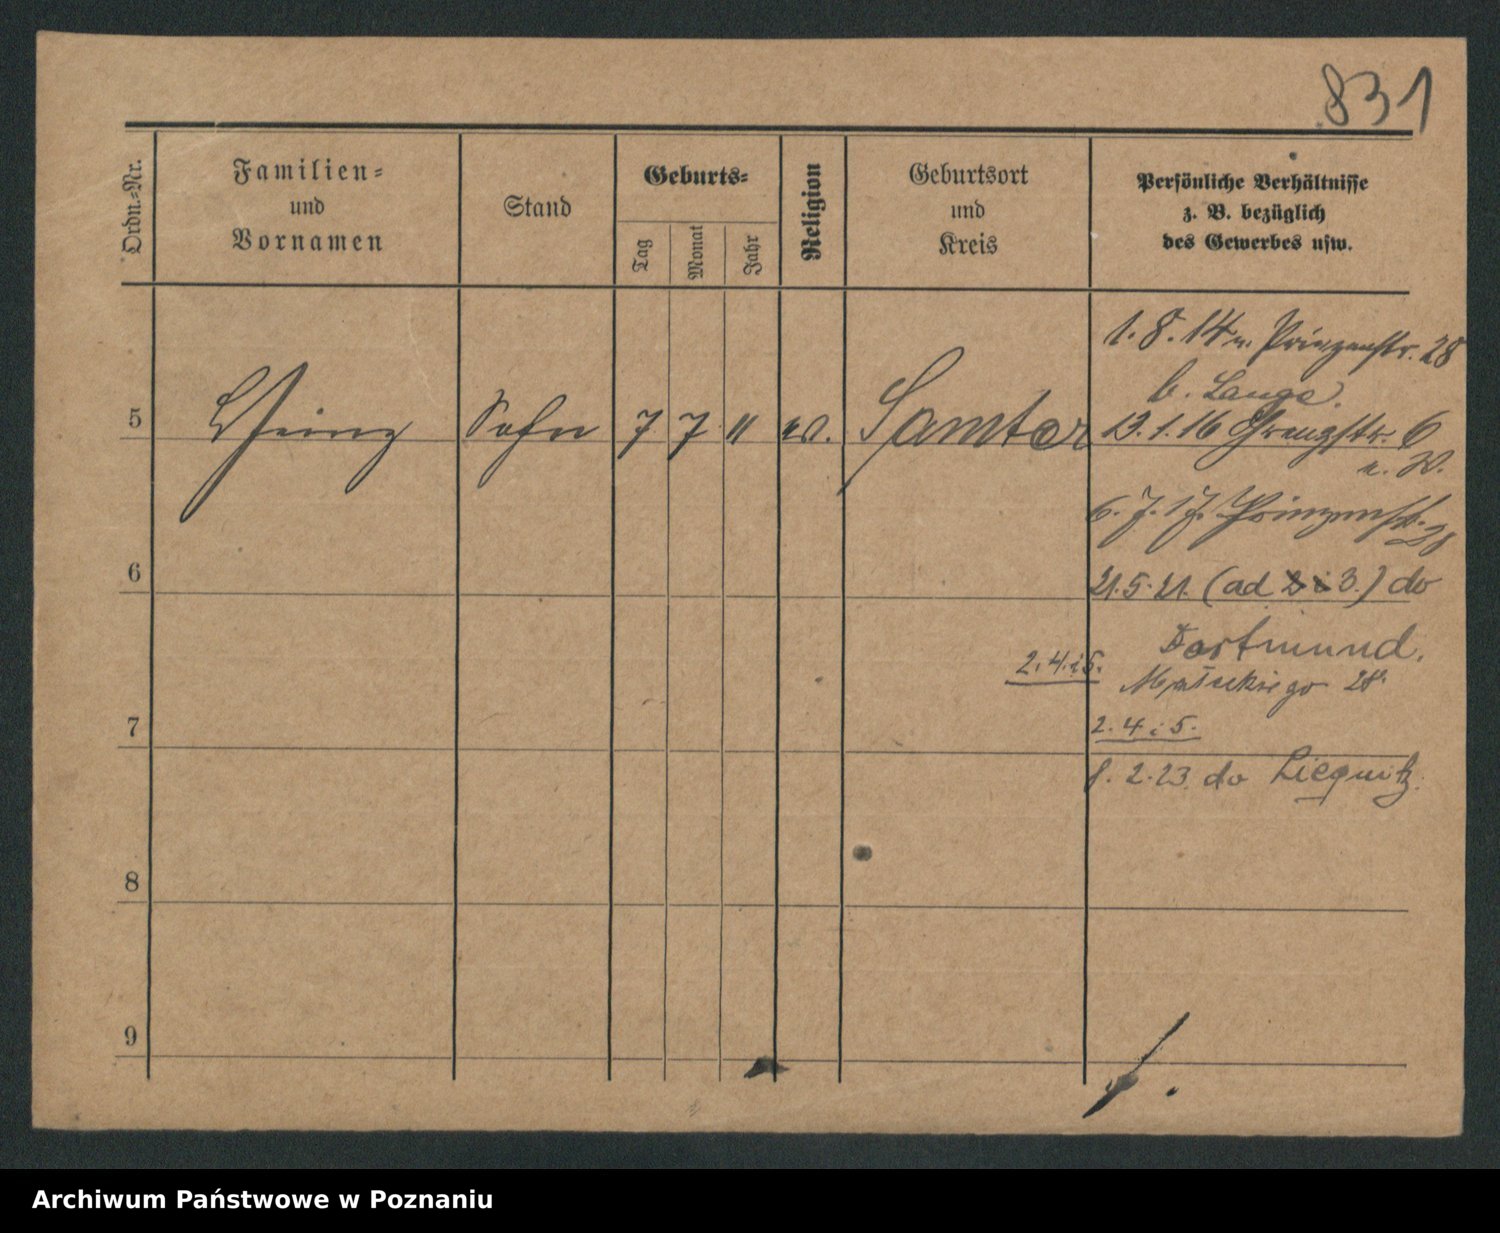 831
Ordn.-Nr.
Familien-
und
Vornamen
Stand
Geburts-
Tag
Monat
Jahr
Religion
Geburtsort
und
Kreis
Persönliche Verhältnisse
z. B. bezüglich
des Gewerbes usw.
1. 8. 14 n. Prinzenstr. 28
b. Lange.
5 Heinz Sohn 7 7 11 ev. Samter 13. 1. 16 Grenzstr. 6
n. W.
6. 7. 17. Prinzenstr. 28
6
21. 5. 21. (ad 3.) do
Dortmund.
2. 4. i 5.
28
7
2. 4 i 5.
8. 2. 23. do Liegnitz.
8
9
Archiwum Państwowe w Poznaniu